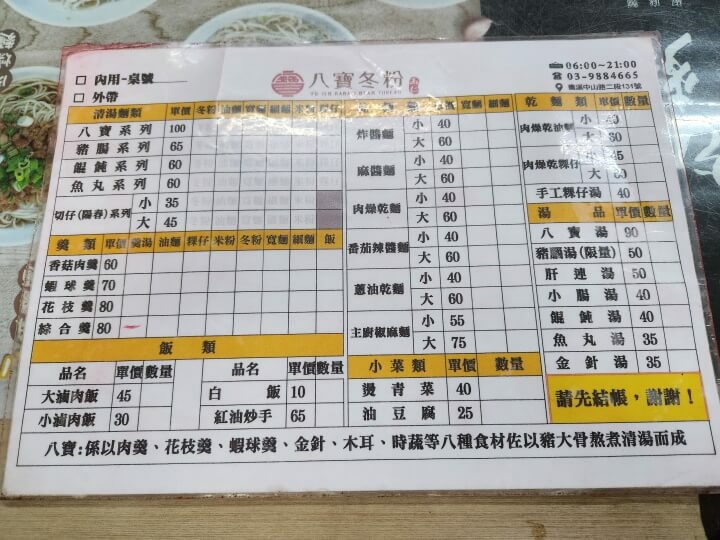 □ 內用-桌號
□ 外帶
八寶冬粉
06:00~21:00
03-9884665
礁溪中山路二段131號
清湯麵類 單價 冬粉 油麵 寬麵 細麵 米粉 粿仔
八寶系列 100
豬腸系列 65
餛飩系列 60
魚丸系列 60
切仔(陽春)系列 小 35
大 45
羹類 單價 羹湯 油麵 粿仔 米粉 冬粉 寬麵 細麵 飯
香菇肉羹 60
蝦球羹 70
花枝羹 80
綜合羹 80
飯類
品名 單價 數量 品名 單價 數量
大滷肉飯 45 白飯 10
小滷肉飯 30 紅油炒手 65
單價 寬麵 細麵
炸醬麵 小 40
大 60
麻醬麵 小 40
大 60
肉燥乾麵 小 40
大 60
番茄辣醬麵 小 40
大 60
蔥油乾麵 小 40
大 60
主廚椒麻麵 小 55
大 75
小菜類 單價 數量
燙青菜 40
油豆腐 25
乾麵類 單價 數量
肉燥乾油麵 小 40
大 60
肉燥乾粿仔 小 45
大 60
手工粿仔湯 40
湯品 單價 數量
八寶湯 90
豬腸湯(限量) 50
肝連湯 50
小腸湯 40
餛飩湯 40
魚丸湯 35
金針湯 35
請先結帳，謝謝！
八寶:係以肉羹、花枝羹、蝦球羹、金針、木耳、時蔬等八種食材佐以豬大骨熬煮清湯而成